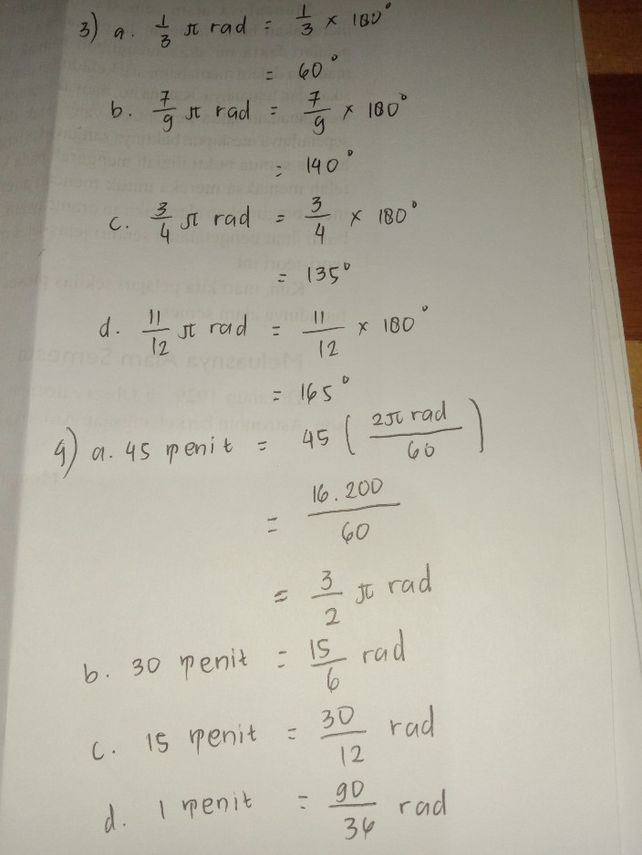 3) a. 1/3 π rad = 1/3 × 180°
= 60°
b. 7/9 π rad = 7/9 × 180°
= 140°
c. 3/4 π rad = 3/4 × 180°
= 135°
d. 11/12 π rad = 11/12 × 180°
= 165°
4) a. 45 menit = 45 (2π rad/60)
= 16.200/60
= 3/2 π rad
b. 30 menit = 15/6 rad
c. 15 menit = 30/12 rad
d. 1 menit = 90/36 rad